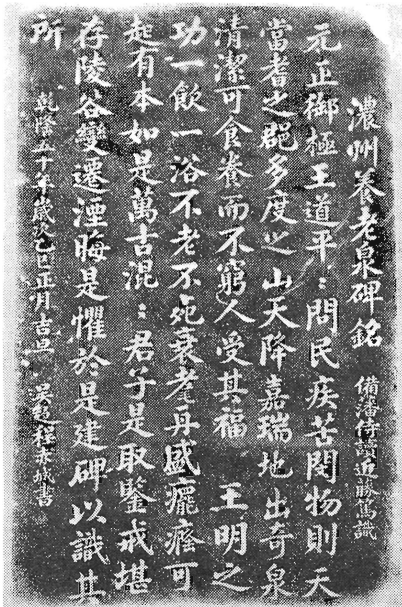 濃州養老泉碑銘
備藩侍讀近藤篤識
元正御極王道平〻問民疾苦閔物則天
當耆之郡多度之山天降嘉瑞地出奇泉
清潔可食養而不窮人受其福 王明之
功一飲一浴不老不死衰耄再盛癃癈可
起有本如是萬古混〻君子是取鑒戒堪
存陵谷變遷湮晦是懼於是建碑以識其
所
乾隆五十年歲次乙巳正月吉旦 吳趨程赤城書